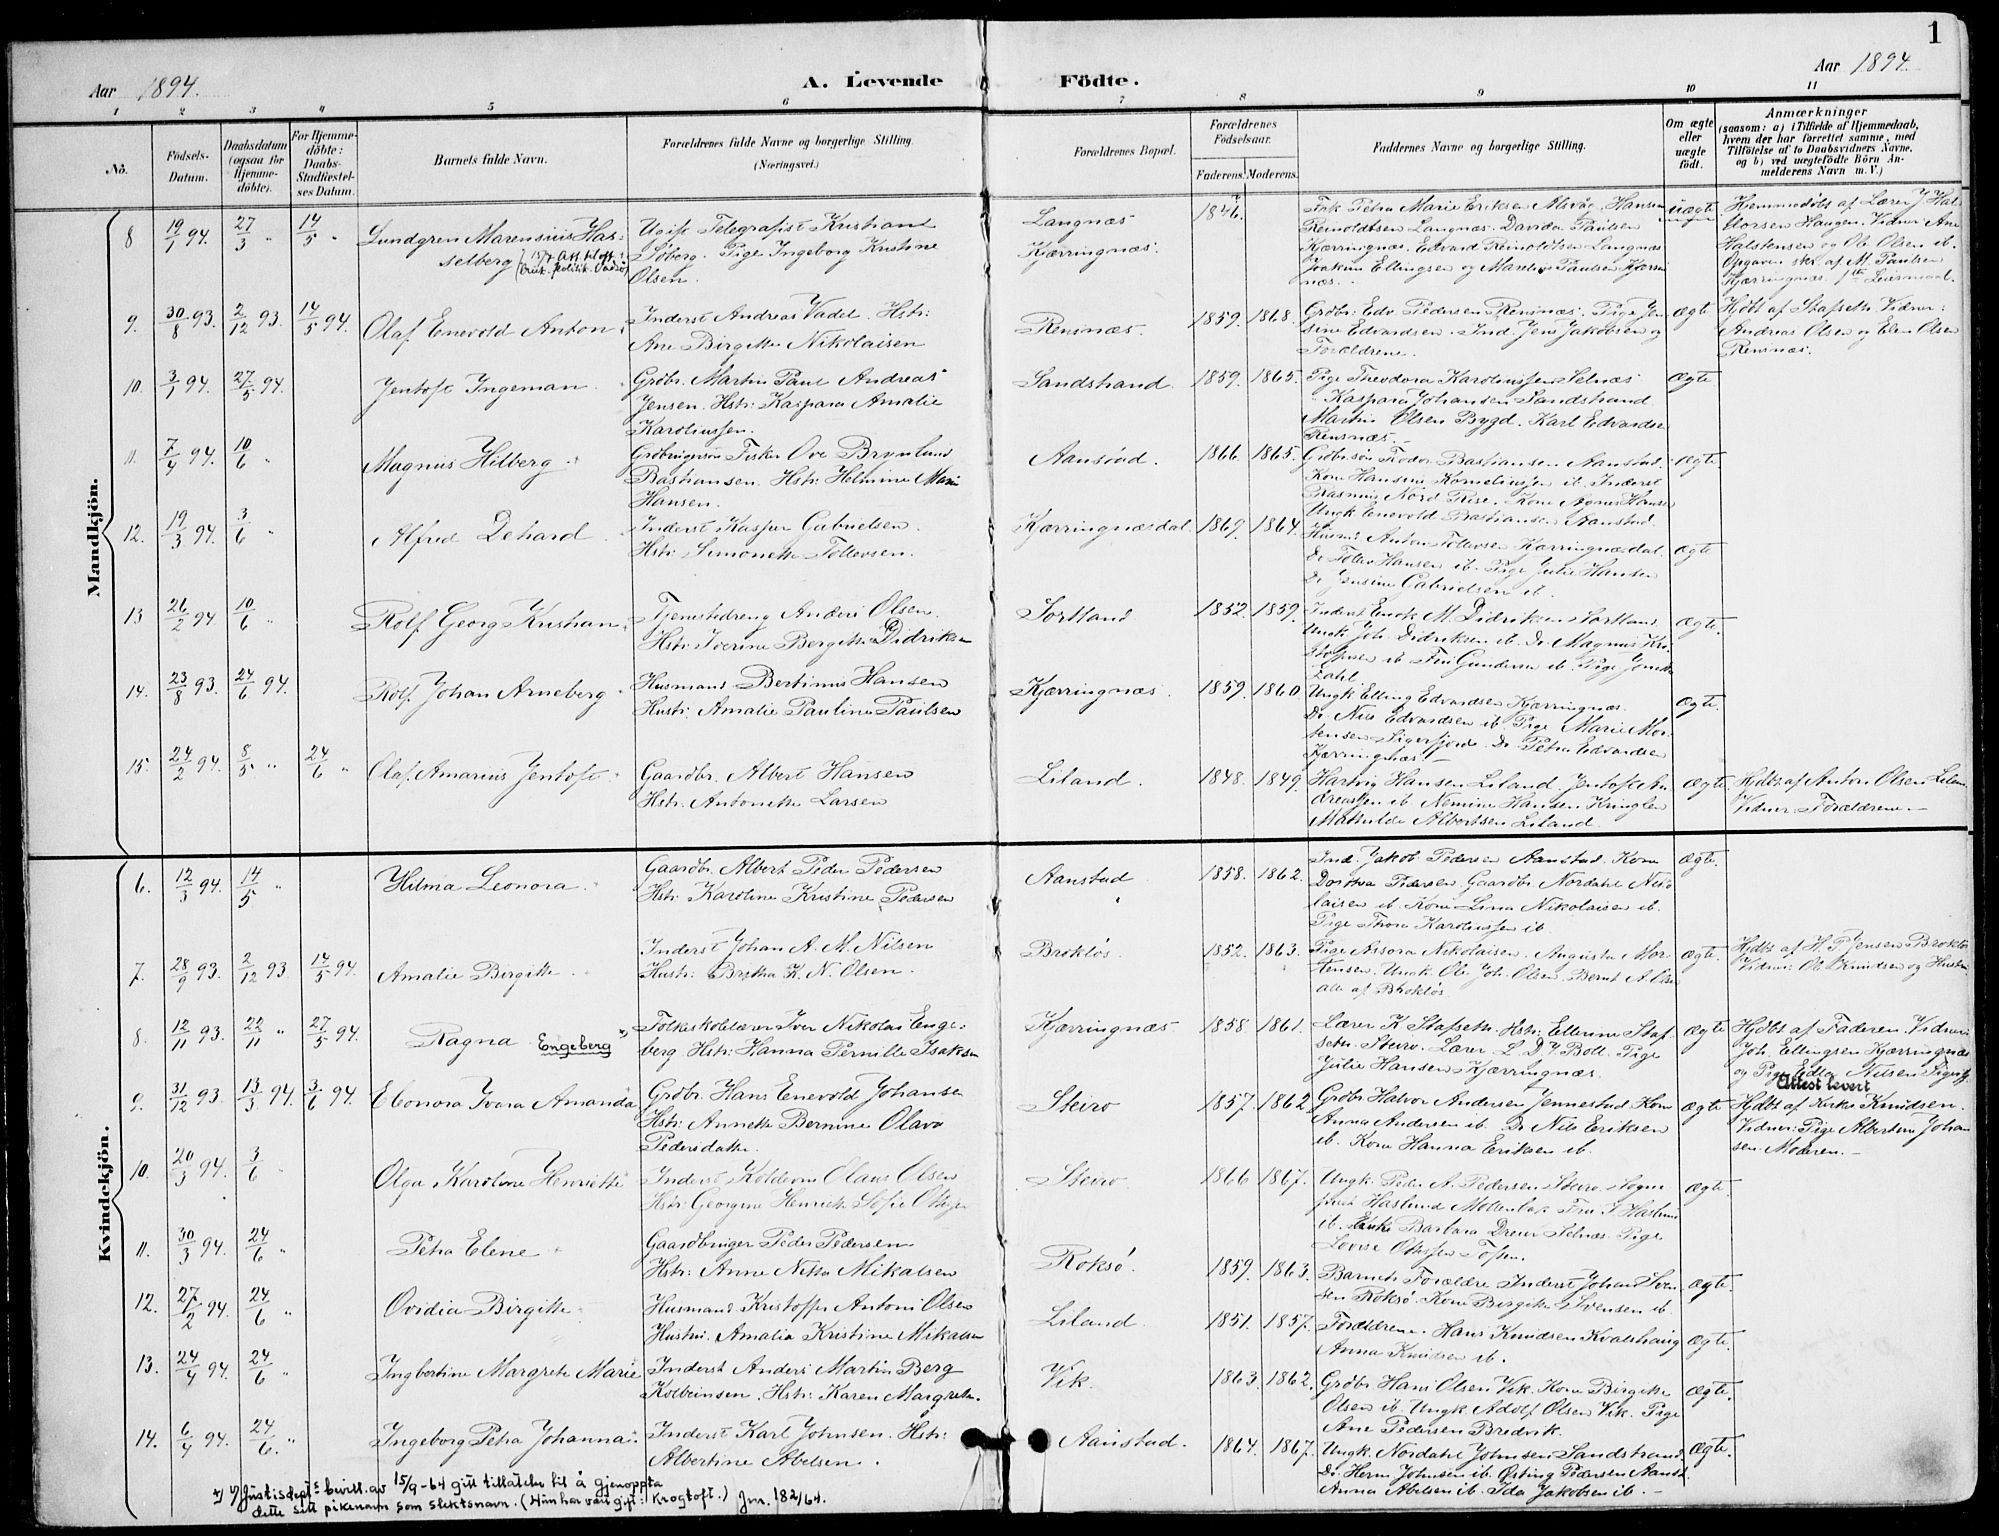 1
Aar 1894. A. Levende Födte. Aar 1894.
1 2 3 4 5 6 7 8 9 10 11
No. Födsels-Datum. Daabsdatum (ogsaa for Hjemmedöbte). For Hjemmedöbte: Daabs-Stadfæstelses Datum. Barnets fulde Navn. Forældrenes fulde Navne og borgerlige Stilling. (Næringsvei.) Forældrenes Bopæl. Forældrenes Födselsaar. Faderens. Moderens. Faddernes Navne og borgerlige Stilling. Om ægte eller uægte födt. Anmærkninger (saasom: a) i Tilfælde af Hjemmedaab, hvem der har forrettet samme, med Tilföielse af to Daabsvidners Navne, og b) ved uægtefödte Börn Anmelderens Navn m. V.)
Mandkjön.
8 19/1 94. 27/3 " 14/5 " Lundgren Marensius Has-
selberg
Ugift Telegrafist Kristiand
Söberg. Pige Ingeborg Kristine
Olsen.
Langnæs
Kjærringnæs.
1846.
Frk Petra Marie Eriksen Alsvåg. Hansen
Reinoldtsen Langnæs. Davida Paulsen
Kjærringnæs. Edvard Reinoldtsen Langnæs
Joakim Ellingsen og Marelius Paulsen Kjærring
næs.
uægte
Hjemmedöbt af Lærer J Hal-
storsen Haugen. Vidner Ane
Halstensen og Ob. Olsen ib.
Opgaven skr. af M. Paulsen
Kjærringnæs. 1ste Leiermaal.
9. 30/8 93. 2/12 93. 14/5 94. Olaf Enevold Anton
Inderst Andreas Vadel. Hstr:
Ane Birgitte Nikolaisen
Rensnæs.
1859. 1868.
Grdbr: Edv. Pedersen Rensnæs. Pige Jen-
sine Edvardsen. Ind. Jens Jakobsen og
Forældrene.
Ægte
Hdbt af Stafseth. Vidner:
Andreas Olsen og Elen Olsen
Rensnæs.
10. 3/1 94. 27/5 94. Jentoft Ingeman
Grdbr. Martin Paul Andreas
Jensen. Hstr: Kaspara Amalie
Karoliussen.
Sandstrand.
1859. 1865.
Pige Theodora Karoliussen Selnæs
" Kaspara Johansen Sandstrand
Martin Olsen Bygd. Karl Edvardsen
Rensnæs.
Ægte
11. 7/4 94. 10/6 " Magnus Hilberg
Fisker Ove Brynlund
Bastiansen. Hstr: Helmine Marie
Hansen.
Aanstad.
1866. 1865.
Grdbr.sön Fedor Bastiansen Aanstad.
Kone Hansine Korneliussen ib. Inderst
Rasmus Nord Rise. Kone Agnes Hansen
Ungk Enevold Bastiansen Aanstad.
Ægte
12. 19/3 94. 3/6 " Alfred Dehard
Inderst Kasper Gabrielsen.
Hstr: Simonette Tollevsen.
Kjærringnæsdal.
1869. 1864.
Husm: Anton Tollevsen Kjærringnæsdal.
Do Tollev Hansen ib. Pige Julie Hansen
Do Jensine Gabrielsen ib.
Ægte
13 26/2 94 10/6 " Rolf Georg Kristian
Tjenestedreng Anders Olsen
Hstr: Iverine Bergitte Didriksen
Sortland
1852. 1859.
Inderst Enok M. Didriksen Sortland
Ungk Joh. Didriksen ib. Do Magnus Kri-
stofersen ib Fru Gundersen ib. Pige Jenette
Zahl
Ægte.
14. 23/8 93. 24/6 94. Rolf Johan Arneberg
Husmand Bertinus Hansen
Hustr: Amalie Pauline Paulsen
Kjærringnæs.
1859. 1860.
Ungk Elling Edvardsen Kjærringnæs.
Do. Nils Edvardsen ib. Pige Marie Mor-
tensen Sigerfjord. Do. Petra Edvardsen
Kjærringnæs
Ægte.
15. 24/2 94. 8/5 " 24/6 " Olaf Amarius Jentoft
Gaardbr. Albert Hansen
Hstr: Antonette Larsen
Liland.
1848. 1849.
Hartvig Hansen Liland Jentoft An-
dreassen ib. Nemine Hansen Kringlen
Mathilde Albertsen Liland.
Ægte
Hjdbt. af Anton Olsen Liland.
Vidner: Forældrene.
Kvindekjön.
6. 12/3 94. 14/5 " Hilma Leonora
Gaardbr. Albert Peder Pedersen
Hstr. Karoline Kristine Pedersen
Aanstad
1858. 1862.
Ind. Jakob Pedersen Aanstad. Kone
Dorthea Pedersen. Gaardbr. Nordahl Niko
laisen ib. Kone Lina Nikolaisen ib.
Pige Thora Karoliussen ib
Ægte.
7. 28/9 93. 2/12 93. 14/5 94. Amalie Birgitte
Inderst Johan A. M. Nilsen
Hustr: Britha K. N. Olsen.
Brokløs.
1852. 1863.
Pige Assora Nikolaisen. Augusta Mor-
tensen. Ungk. Ole Joh. Olsen. Bernt A. Olsen
alle af Brokløs
Ægte.
Hjdbt af H. P. Jensen Brokløs
Vidner: Ole Knudsen og Hustru
8. 12/11 93. 22/11 " 27/5 94. Ragna Engeberg x)
Folkeskolelærer Iver Nikolai Enge-
berg. Hstr: Hanna Pernille Isaksen
Kjærringnæs
1858. 1861.
Lærer K Stafseth. Hstr: Ellerine Staf-
seth. Steiro. Lærer L. D. J. Boll. Pige
Julie Hansen Kjærringnæs.
Ægte
Hjdbt af Faderen. Vidner:
Joh. Ellingsen Kjærringnæs
og Pige Edla Nilsen
Attest levert
9. 31/12 93. 13/3 94. 3/6 94. Eleonora Ivara Amanda
Grdbr. Hans Enevold Johansen
Hstr: Annette Bernine Olava
Pedersdatter.
Steiro
1857. 1862
Grdbr Halvor Andersen Jennestad Kone
Anna Andersen ib. Do Nils Eriksen
ib. Kone Hanna Eriksen ib.
Ægte
Hdbt af Kirkes. Knudsen.
Vidner: Pige Albertine Johan
sen. Moderen.
10. 20/3 94. 3/6 Olga Karoline Henriette
Inderst Koldevin Olaus Olsen
Hstr: Georgine Henriette Sofie Ottesen
Steiro.
1866 1867.
Ungk. Peder A. Pedersen Steiro. Sogne
præst Haslund Fru S. Haslund
ib. Enke Barbara Dreier Selnæs. Pige
Lovise Ottesen
Ægte.
11. 30/3 94. 24/6 " Petra Elene
Gaardbruger Peder Pedersen
Hstr: Anne Nikka Mikalsen
Roksø.
1859. 1863.
Barnets Forældre Inderst Johan Sven
sen Roksø. Kone Birgitte Svensen ib.
Ægte.
12. 27/2 94. 24/6 " Ovidia Birgitte
Husmand Kristoffer Antoni Olsen
Hustru: Amalia Kristine Mikalsen
Liland.
1851. 1857.
Forældrene. Hans Knudsen Kvalshaug
Anna Knudsen ib.
Ægte.
13. 24/4 94. 24/6 " Ingbertine Margrethe Marie
Inderst Anders Martin Berg
Kolbeinsen. Hstr: Karen Margrete.
Vik.
1863. 1862.
Grdbr Hans Olsen Vik. Kone Birgitte
Olsen ib. Ungk. Adolf Olsen Vik. Pige
Ane Pedersen Bredvik.
Ægte.
14. 6/4 94. 24/6 " Ingeborg Petra Johanna
Inderst Karl Johnsen. Hstr:
Albertine Abelsen.
Aanstad.
1864. 1867.
Ungk. Nordahl Johnsen Sandstrand
Do: Herm Johnsen ib. Østing Pedersen Aanstad
Anna Abelsen ib. Ida Jakobsen ib.
Ægte.
x) V/Justisdept.s bevill. av 15/9-64 gitt tillatelse til å gjenoppta
dette sitt pikenavn som slektsnavn. (Hun har vært gift: Krogtoft.) Jnr. 182/64.